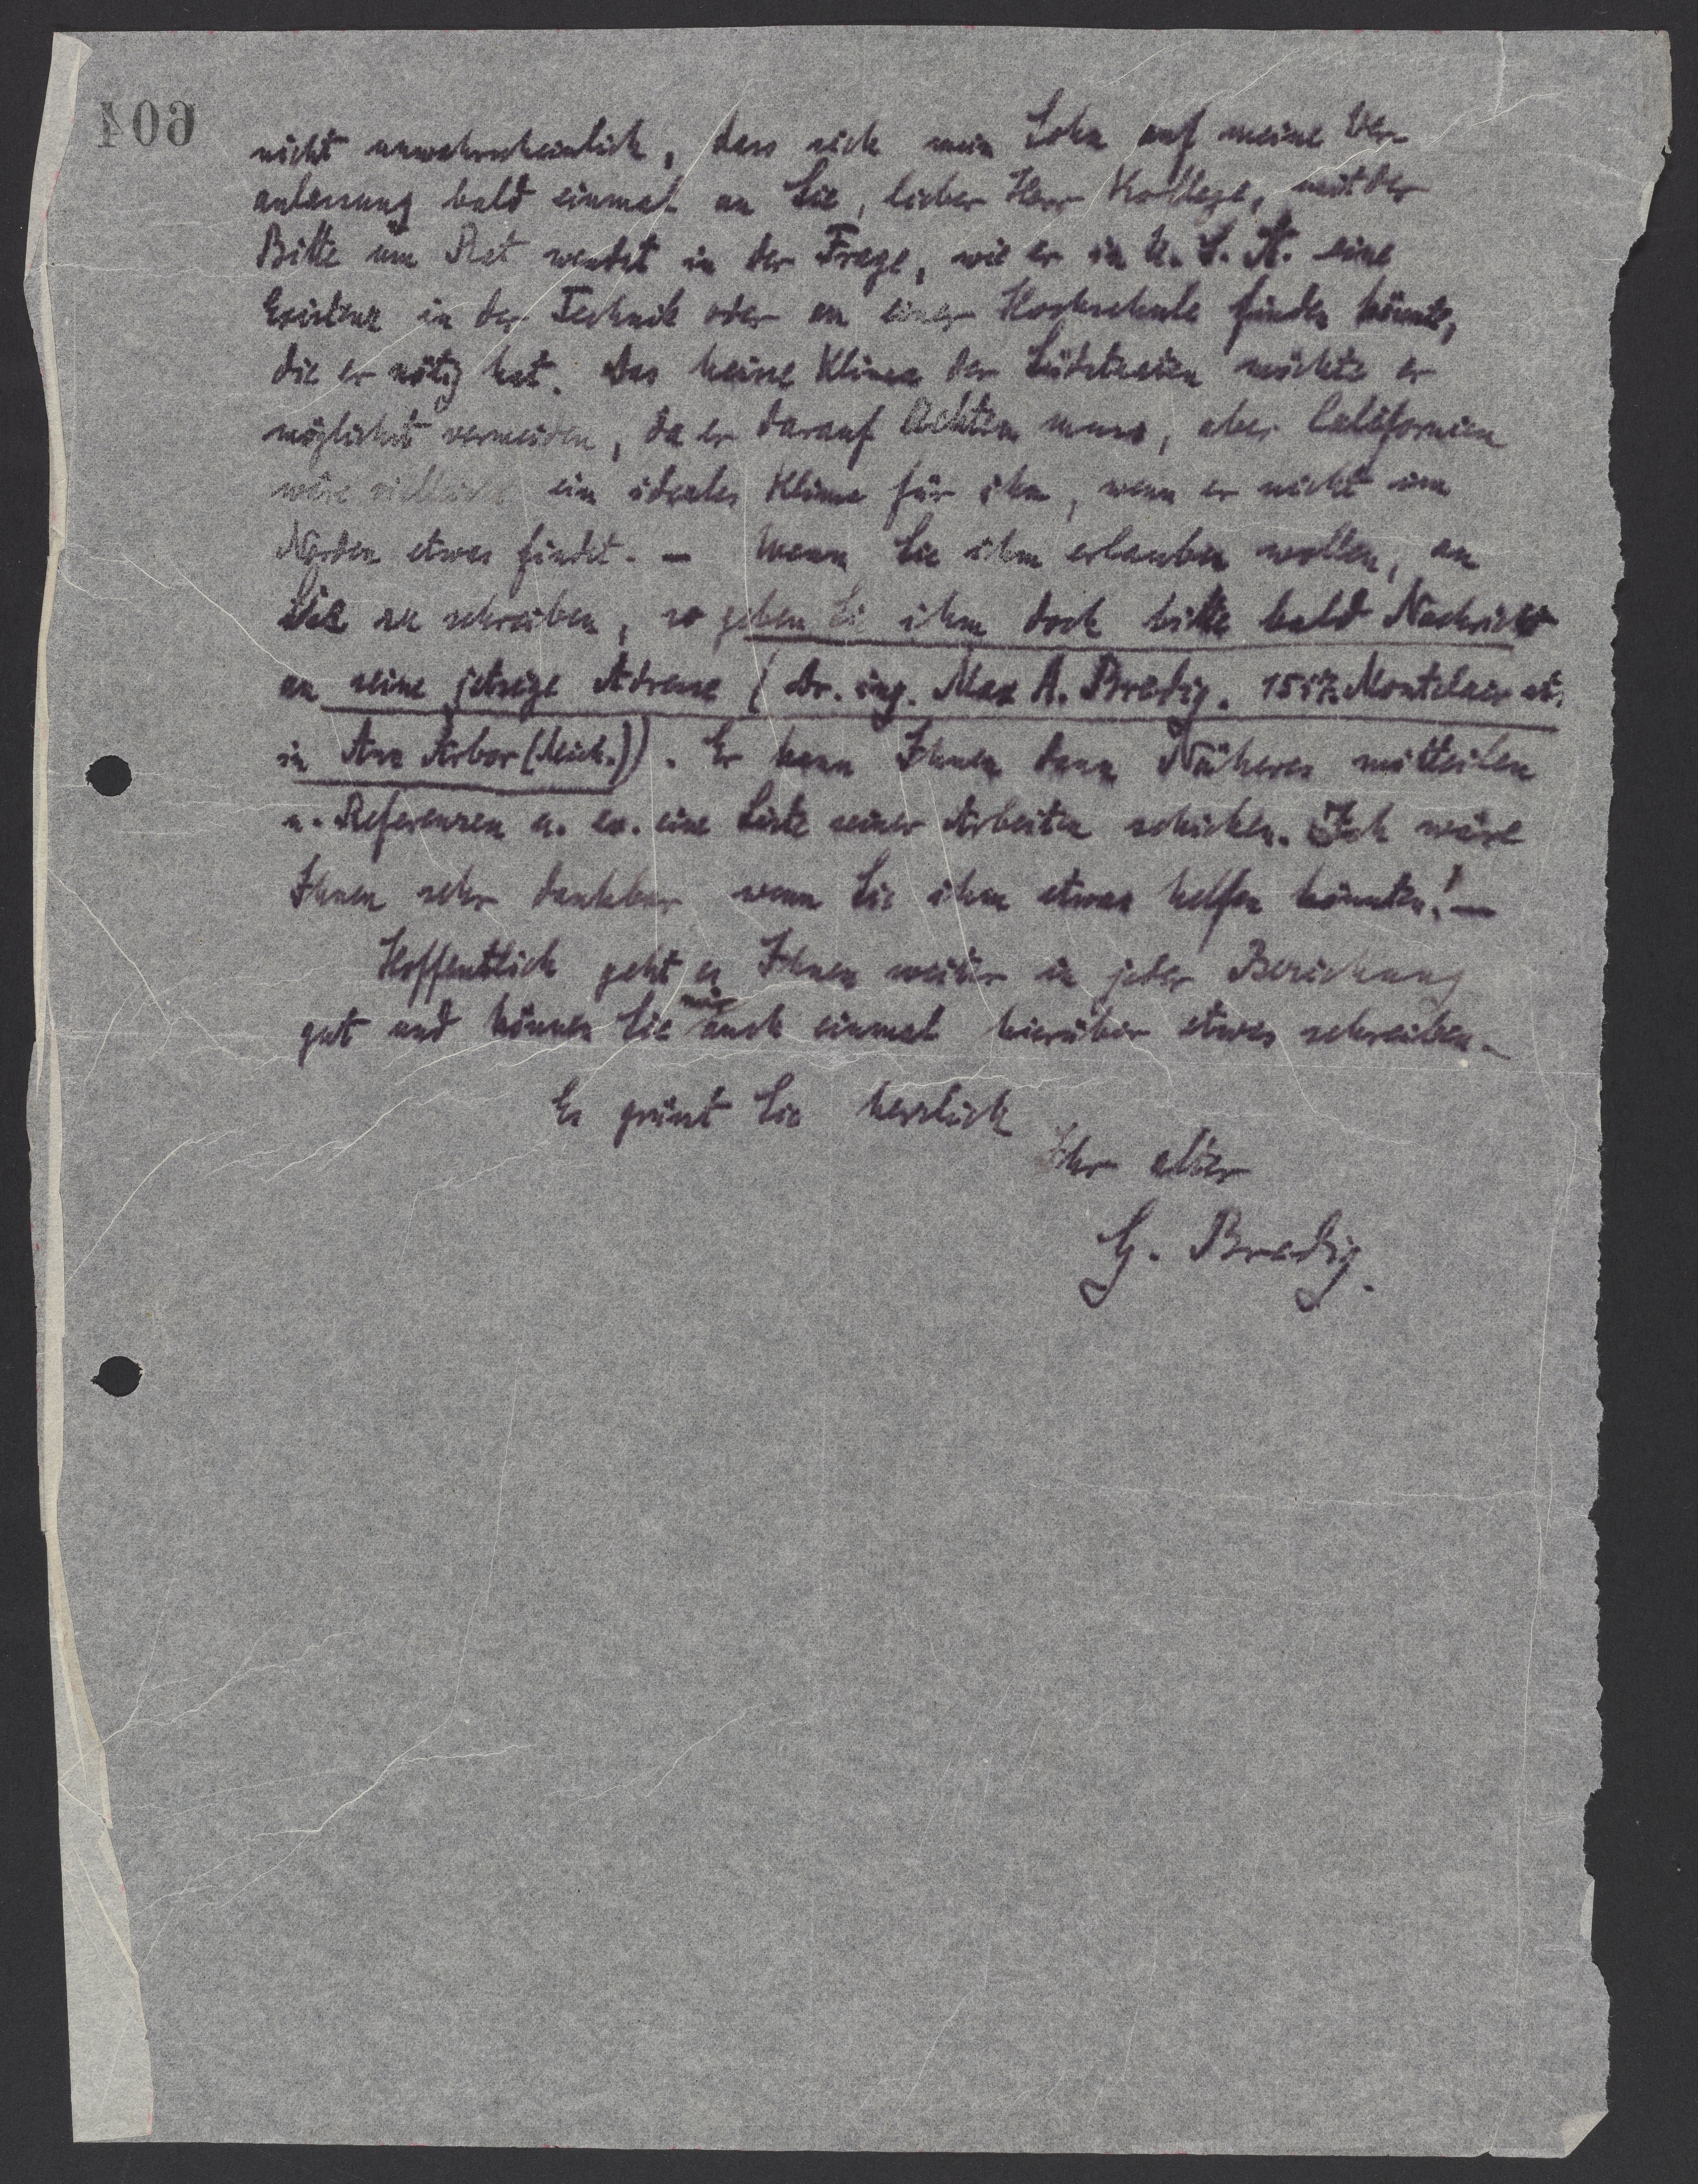 604
nicht unwahrscheinlich, dass sich mein Sohn auf meine Ver-
anlassung bald einmal an Sie, lieber Herr Kollege, mit der
Bitte um Rat wendet in der Frage, wie er in U. S. A. eine
Existenz in der Technik oder an einer Hochschule finden könnte,
die er nötig hat. Das heisse Klima der Südstaaten möchte er
möglichst vermeiden, da er darauf achten muss, aber Californien
wäre vielleicht ein ideales Klima für ihn, wenn er nicht im
Norden etwas findet. — Wenn Sie ihm erlauben wollen, an
Sie zu schreiben, so geben Sie ihm doch bitte bald Nachricht
an seine jetzige Adresse (Dr. ing. Max A. Bredig. Montclair
in Ann Arbor (Mich.)). Er kann Ihnen dann Näheres mitteilen
u. Referenzen u. ev. eine Liste seiner Arbeiten schicken. Ich wäre
Ihnen sehr dankbar wenn Sie ihm etwas helfen könnten! —
Hoffentlich geht es Ihnen weiter in jeder Beziehung
gut und können Sie mir auch einmal hierüber etwas schreiben.
Es grüsst Sie herzlich
Ihr alter
G. Bredig.